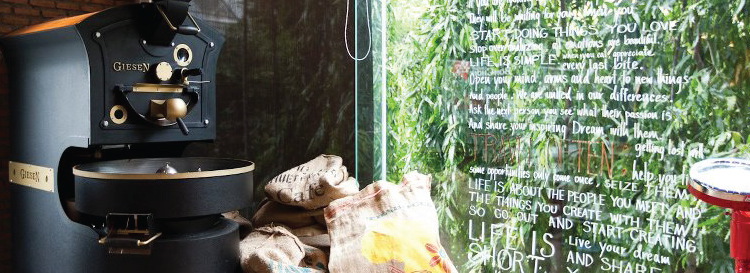 GIESEN
GIESEN
They will be waiting for you
START DOING THINGS YOU LOVE
Stop over analyzing, all emotions are beautiful.
LIFE IS SIMPLE when you eat, appreciate
every last bite.
Open your mind, arms and heart to new things
And people, We are united in our differences.
Ask the next person you see what their passion is
And share your inspiring Dream with them
TRAVEL OFTEN
getting lost
help you
some opportunities only come once, SEIZE THEM
LIFE IS ABOUT THE PEOPLE YOU MEET AND
THE THINGS YOU CREATE WITH THEM,
SO GO OUT AND START CREATING
LIFE IS Live your dream
SHORT AND SHARE